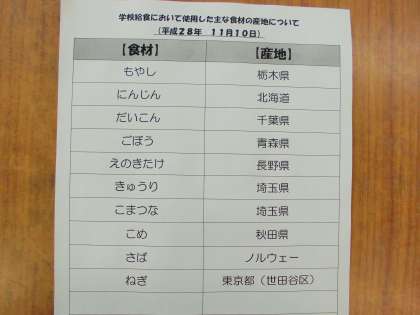 学校給食において使用した主な食材の産地について
(平成28年 11月10日)
【食材】 【産地】
もやし 栃木県
にんじん 北海道
だいこん 千葉県
ごぼう 青森県
えのきたけ 長野県
きゅうり 埼玉県
こまつな 埼玉県
こめ 秋田県
さば ノルウェー
ねぎ 東京都(世田谷区)